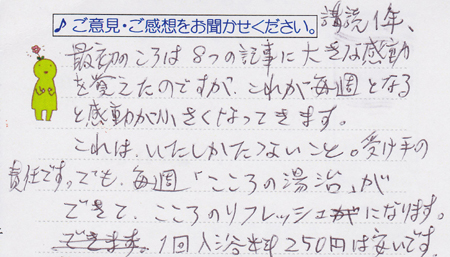 ♪ご意見・ご感想をお聞かせください。 講読1年、
最初のころは8つの記事に大きな感動
を覚えたのですが、これが毎週となる
と感動が小さくなってきます。
これは、いたしかたのないこと。受け手の
責任です。でも、毎週「こころの湯治」が
できて、こころのリフレッシュがになります。
できます。1回入浴料250円は安いです。